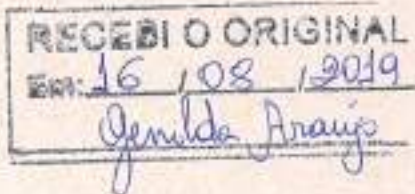 RECEBI O ORIGINAL
Em: 16 / 08 / 2019
Genilda Araujo